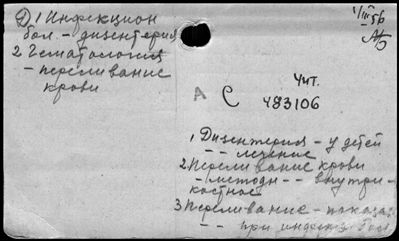 1 Инфекцион
бол. - дизентерия
2 Гематология
- переливание
крови
1/III 56
Чит.
А С
483106
1 Дизентерия - у детей
- - лечение
2 Переливание крови
- методы - - внутри-
костное
3 Переливание - показа
- - при инфекц.